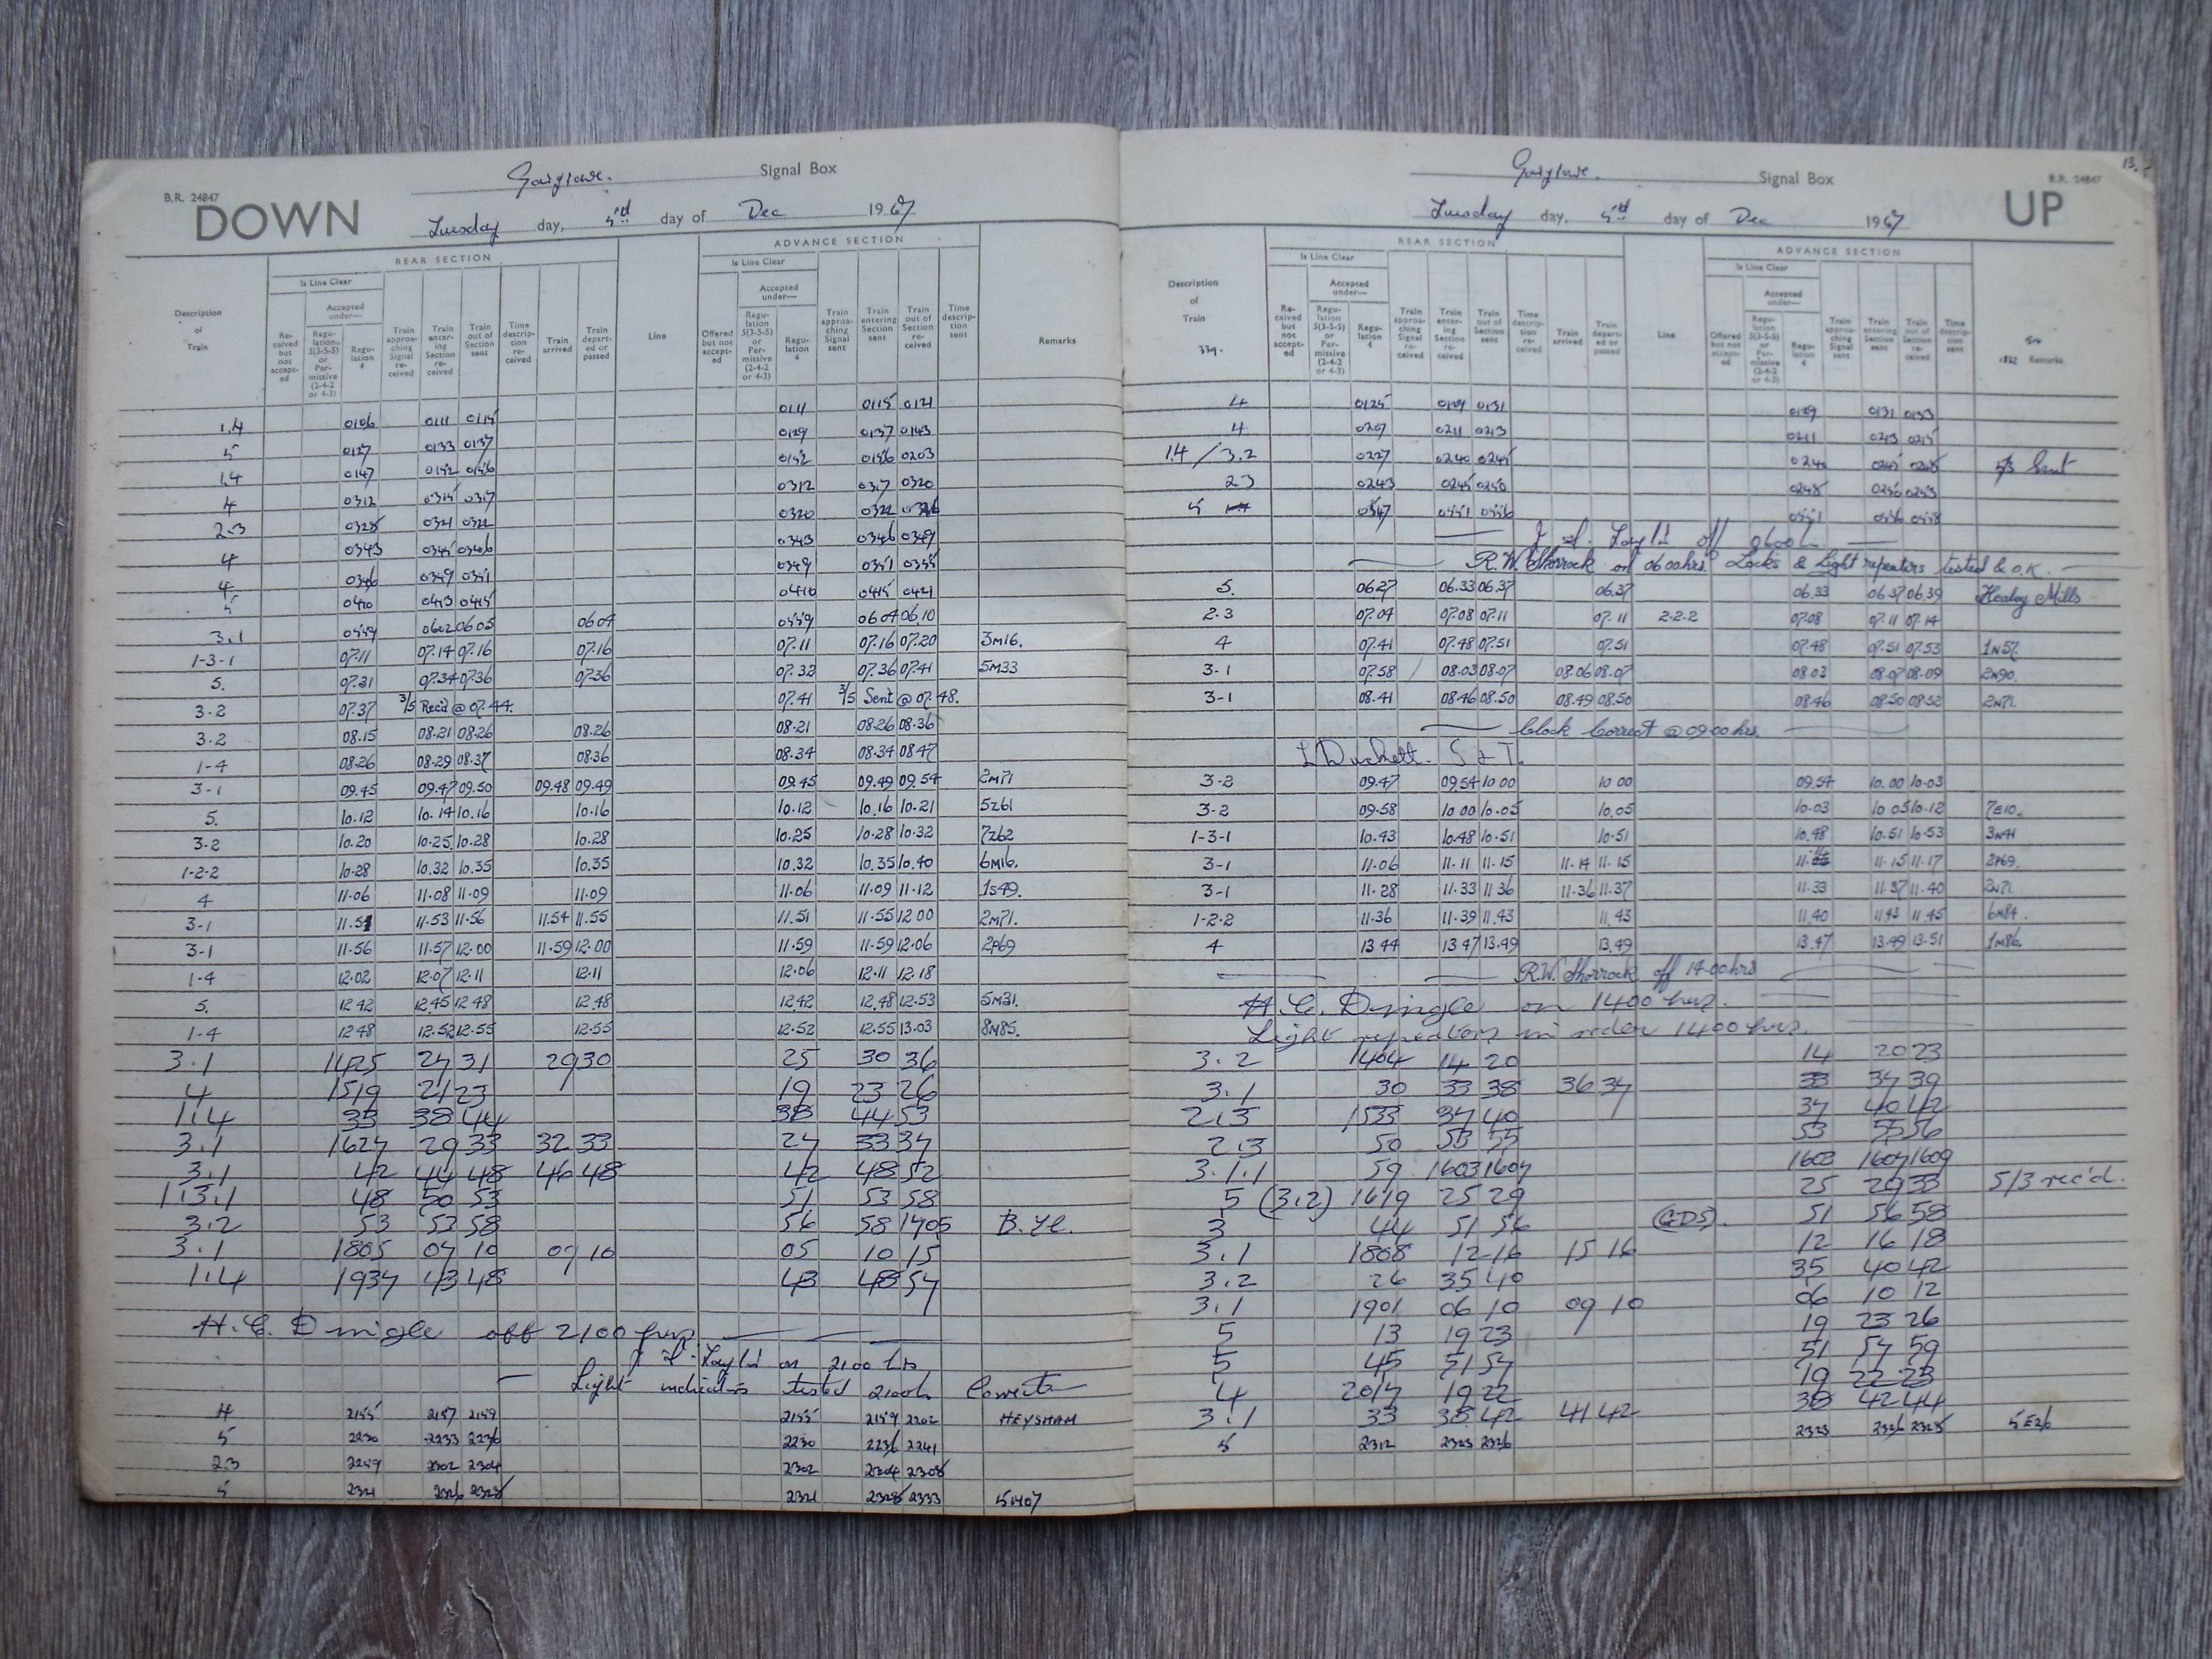 B.R. 24847
DOWN
Signal Box
Tuesday day, 5 day of Dec 1967
REAR SECTION
ADVANCE SECTION
Is Line Clear
Is Line Clear
Description of Train
Re-ceived but not accept-ed
Accepted under—
Regu-lation 5(3-5-5) or Per-missive (2-4-2 or 4-3)
Regu-lation 4
Train approa-ching Signal re-ceived
Train enter-ing Section re-ceived
Train out of Section sent
Time descrip-tion re-ceived
Train arrived
Train depart-ed or passed
Line
Offered but not accept-ed
Accepted under—
Regu-lation 5(3-5-5) or Per-missive (2-4-2 or 4-3)
Regu-lation 4
Train approa-ching Signal sent
Train entering Section sent
Train out of Section re-ceived
Time descrip-tion sent
Remarks
1.4 0106 0111 0115 0111 0115 0121
5 0127 0133 0137 0129 0137 0143
1.4 0147 0152 0156 0152 0156 0203
4 0312 0315 0317 0312 0317 0320
2-3 0321 0322 0320 0322
4 0343 0345 0346 0343 0346 0349
4 0346 0349 0351 0349 0351 0355
5 0410 0413 0415 0410 0415 0421
3.1 0559 0602 0605 0604 0559 0604 0610
1-3-1 07.11 07.14 07.16 07.16 07.11 07.16 07.20 3M16.
5. 07.31 07.34 07.36 07.36 07.32 07.36 07.41 5M33
3-2 07.37 3/5 Rec'd @ 07.44. 07.41 3/5 Sent @ 07.48.
3-2 08.15 08.21 08.26 08.26 08.21 08.26 08.36
1-4 08.26 08.29 08.37 08.36 08.34 08.34 08.47
3-1 09.45 09.47 09.50 09.48 09.49 09.45 09.49 09.54 2M71
5. 10.12 10.14 10.16 10.16 10.12 10.16 10.21 5Z61
3-2 10.20 10.25 10.28 10.28 10.25 10.28 10.32 7Z62
1-2-2 10.28 10.32 10.35 10.35 10.32 10.35 10.40 6M16.
4 11.06 11.08 11.09 11.09 11.06 11.09 11.12 1S49.
3-1 11.51 11.53 11.56 11.54 11.55 11.51 11.55 12.00 2M71.
3-1 11.56 11.57 12.00 11.59 12.00 11.59 11.59 12.06 2P69
1-4 12.02 12.07 12.11 12.11 12.06 12.11 12.18
5. 12.42 12.45 12.48 12.48 12.42 12.48 12.53 5M31.
1-4 12.48 12.52 12.55 12.55 12.52 12.55 13.03 8M85.
3.1 1425 27 31 29 30 25 30 36
4 1519 21 23 19 23 26
1.4 33 38 44 38 44 53
3.1 1627 29 33 32 33 27 33 37
3.1 42 44 48 46 48 42 48 52
1.3.1 48 50 53 51 53 58
3.2 53 53 58 56 58 1705
3.1 1805 07 10 09 10 05 10 15
1.4 1937 43 48 43 48 57
H. C. Dringle off 2100 hrs
on 2100 hrs
Light indicators tested 2100h Correct
4 2155 2157 2159 2155 2159 2202 HEYSHAM
5 2230 2233 2236 2230 2236 2241
2.3 2259 2302 2304 2302 2304 2308
5 2321 2326 2328 2321 2328 2333
B.R. 24847
Signal Box
UP
Tuesday day, 5 day of Dec 1967
REAR SECTION
ADVANCE SECTION
Is Line Clear
Is Line Clear
Description of Train
Re-ceived but not accept-ed
Accepted under—
Regu-lation 5(3-5-5) or Per-missive (2-4-2 or 4-3)
Regu-lation 4
Train approa-ching Signal re-ceived
Train enter-ing Section re-ceived
Train out of Section sent
Time descrip-tion re-ceived
Train arrived
Train depart-ed or passed
Line
Offered but not accept-ed
Accepted under—
Regu-lation 5(3-5-5) or Per-missive (2-4-2 or 4-3)
Regu-lation 4
Train approa-ching Signal sent
Train entering Section sent
Train out of Section re-ceived
Time descrip-tion sent
Remarks
4 0125 0129 0131 0129 0131 0133
4 0207 0211 0213 0211 0213 0215
1.4 / 3.2 0227 0240 0245 0240 0245 0248 5/3 Sent
2 3 0243 0248 0250 0248 0250 0253
5 0547 0551 0556 0551 0556 0558
off 0600h
R.W. Shorrock on 0600hrs Locks & Light repeaters tested & O.K.
5. 06.27 06.33 06.37 06.37 06.33 06.37 06.39 Healey Mills
2-3 07.04 07.08 07.11 07.11 2-2-2 07.08 07.11 07.14
4 07.41 07.48 07.51 07.51 07.48 07.51 07.53 1N57.
3-1 07.58 08.03 08.07 08.06 08.07 08.03 08.07 08.09 2N90.
3-1 08.41 08.46 08.50 08.49 08.50 08.46 08.50 08.52 2N71.
Clock Correct @ 09.00 hrs.
L Duckett. S & T.
3-2 09.47 09.54 10 00 10 00 09.54 10.00 10.03
3-2 09.58 10 00 10.05 10.05 10.03 10 05 10.12 7E10.
1-3-1 10.43 10.48 10.51 10.51 10.48 10.51 10.53 3N41
3-1 11.06 11.11 11.15 11.14 11.15 11.15 11.17 2P69.
3-1 11.28 11.33 11 36 11.36 11.37 11.33 11.37 11.40 2N71.
1-2-2 11.36 11.39 11.43 11.43 11.40 11.43 11.45 6M84.
4 13 44 13 47 13.49 13.49 13.47 13.49 13.51 1M86
R.W. Shorrock off 14.00hrs
H. C. Dringle on 1400 hrs.
Light repeaters in order 1400 hrs.
3.2 1404 14 20 14 20 23
3.1 30 33 38 36 37 33 37 39
2.3 1533 37 40 37 40 42
2.3 50 53 55 53 55 56
3.1.1 59 1603 1607 1603 1607 1609
5 (3.2) 1619 25 29 25 29 33 5/3 rec'd.
3 44 51 56 51 56 58
3.1 1808 12 16 15 16 12 16 18
3.2 26 35 40 35 40 42
3.1 1901 06 10 09 10 06 10 12
5 13 19 23 19 23 26
5 45 51 57 51 57 59
4 2017 19 22 19 22 23
3.1 33 38 42 41 42 38 42 44
5 2312 2323 2326 2323 2326 2328 5E26